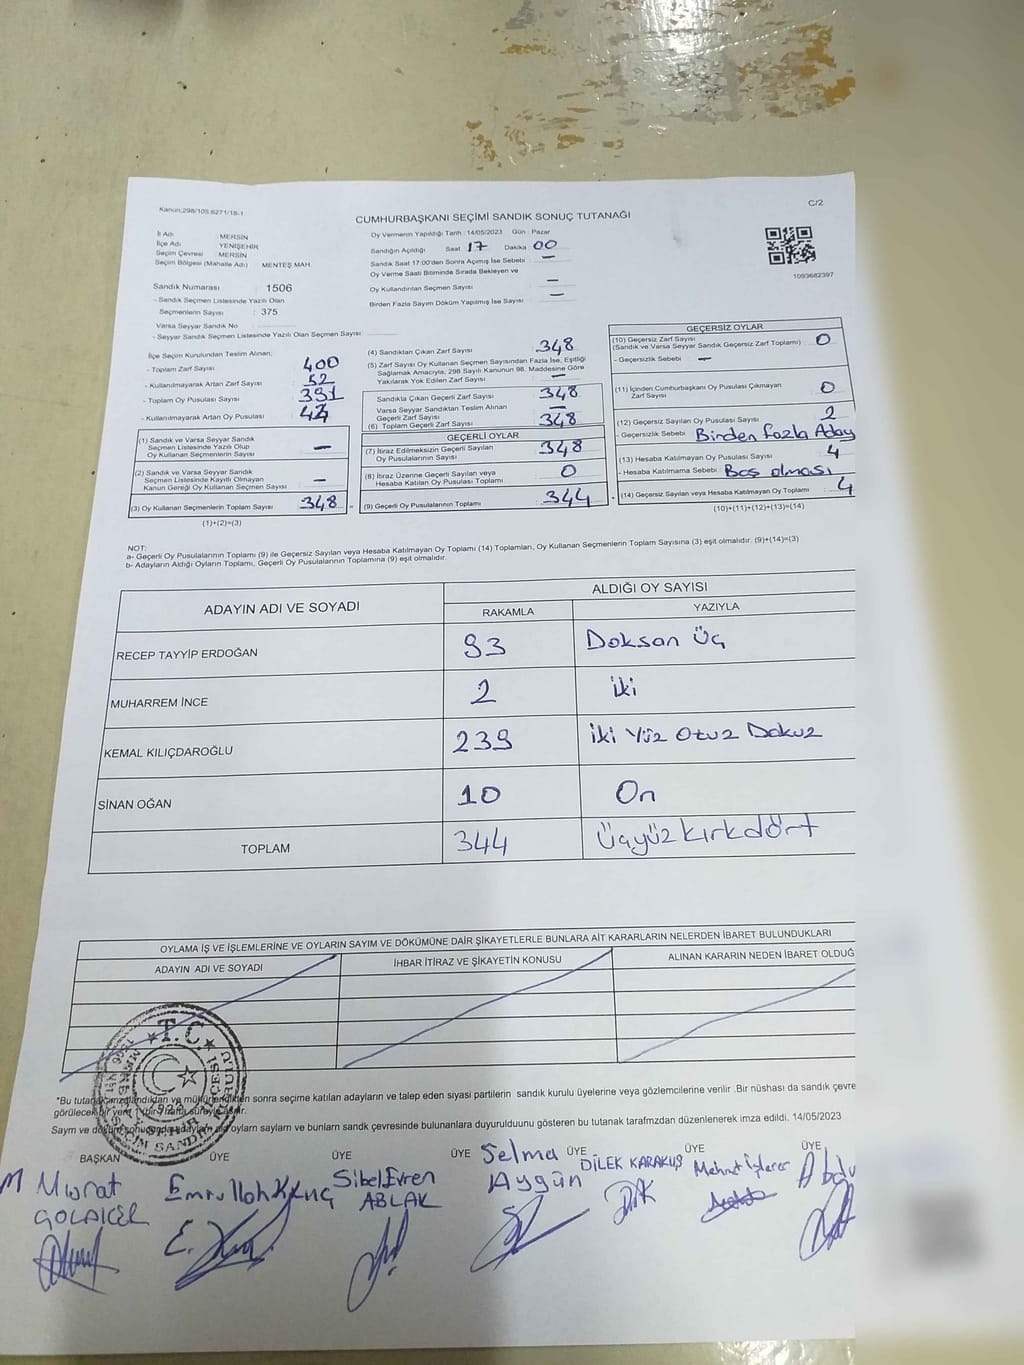 Kanun;298/105;6271/18-1
C/2
CUMHURBAŞKANI SEÇİMİ SANDIK SONUÇ TUTANAĞI
İl Adı : MERSİN
İlçe Adı : YENİŞEHİR
Seçim Çevresi : MERSİN
Seçim Bölgesi (Mahalle Adı) : MENTEŞ MAH.
Sandık Numarası : 1506
- Sandık Seçmen Listesinde Yazılı Olan
Seçmenlerin Sayısı : 375
Varsa Seyyar Sandık No :
- Seyyar Sandık Seçmen Listesinde Yazılı Olan Seçmen Sayısı:
Oy Vermenin Yapıldığı Tarih : 14/05/2023 Gün : Pazar
Sandığın Açıldığı Saat 17 Dakika 00
Sandık Saat 17:00'den Sonra Açımış İse Sebebi : —
Oy Verme Saati Bitiminde Sırada Bekleyen ve
Oy Kullandırılan Seçmen Sayısı : —
Birden Fazla Sayım Döküm Yapılmış İse Sayısı : —
1093682397
İlçe Seçim Kurulundan Teslim Alınan;
- Toplam Zarf Sayısı : 400
- Kullanılmayarak Artan Zarf Sayısı : 52
- Toplam Oy Pusulası Sayısı : 391
- Kullanılmayarak Artan Oy Pusulası : 43
(1) Sandık ve Varsa Seyyar Sandık
Seçmen Listesinde Yazılı Olup
Oy Kullanan Seçmenlerin Sayısı : —
(2) Sandık ve Varsa Seyyar Sandık
Seçmen Listesinde Kayıtlı Olmayan
Kanun Gereği Oy Kullanan Seçmen Sayısı : —
(3) Oy Kullanan Seçmenlerin Toplam Sayısı : 348
(1)+(2)=(3)
(4) Sandıktan Çıkan Zarf Sayısı : 348
(5) Zarf Sayısı Oy Kullanan Seçmen Sayısından Fazla İse, Eşitliği
Sağlamak Amacıyla, 298 Sayılı Kanunun 98. Maddesine Göre
Yakılarak Yok Edilen Zarf Sayısı : —
Sandıkta Çıkan Geçerli Zarf Sayısı : 348
Varsa Seyyar Sandıktan Teslim Alınan
Geçerli Zarf Sayısı : —
(6) Toplam Geçerli Zarf Sayısı : 348
GEÇERLİ OYLAR
(7) İtiraz Edilmeksizin Geçerli Sayılan
Oy Pusulalarının Sayısı : 348
(8) İtiraz Üzerine Geçerli Sayılan veya
Hesaba Katılan Oy Pusulası Toplamı : 0
(9) Geçerli Oy Pusulalarının Toplamı : 344
GEÇERSİZ OYLAR
(10) Geçersiz Zarf Sayısı
(Sandık ve Varsa Seyyar Sandık Geçersiz Zarf Toplamı) : 0
- Geçersizlik Sebebi : —
(11) İçinden Cumhurbaşkanı Oy Pusulası Çıkmayan
Zarf Sayısı : 0
(12) Geçersiz Sayılan Oy Pusulası Sayısı : 2
- Geçersizlik Sebebi : Birden fazla Aday
(13) Hesaba Katılmayan Oy Pusulası Sayısı : 4
- Hesaba Katılmama Sebebi : Boş olması
(14) Geçersiz Sayılan veya Hesaba Katılmayan Oy Toplamı : 4
(10)+(11)+(12)+(13)=(14)
NOT:
a- Geçerli Oy Pusulalarının Toplamı (9) ile Geçersiz Sayılan veya Hesaba Katılmayan Oy Toplamı (14) Toplamları, Oy Kullanan Seçmenlerin Toplam Sayısına (3) eşit olmalıdır. (9)+(14)=(3)
b- Adayların Aldığı Oyların Toplamı, Geçerli Oy Pusulalarının Toplamına (9) eşit olmalıdır.
ADAYIN ADI VE SOYADI
ALDIĞI OY SAYISI
RAKAMLA YAZIYLA
RECEP TAYYİP ERDOĞAN 93 Doksan Üç
MUHARREM İNCE 2 iki
KEMAL KILIÇDAROĞLU 239 iki Yüz Otuz Dokuz
SİNAN OĞAN 10 On
TOPLAM 344 Üçyüz kırk dört
OYLAMA İŞ VE İŞLEMLERİNE VE OYLARIN SAYIM VE DÖKÜMÜNE DAİR ŞİKAYETLERLE BUNLARA AİT KARARLARIN NELERDEN İBARET BULUNDUKLARI
ADAYIN ADI VE SOYADI İHBAR İTİRAZ VE ŞİKAYETİN KONUSU ALINAN KARARIN NEDEN İBARET OLDUĞ
T.C
*Bu tutanak sonra seçime katılan adayların ve talep eden siyasi partilerin sandık kurulu üyelerine veya gözlemcilerine verilir .Bir nüshası da sandık çevre
Sayım ve oyların sayların ve bunların sandık çevresinde bulunanlara duyurulduunu gösteren bu tutanak tarafmzdan düzenlenerek imza edildi. 14/05/2023
BAŞKAN ÜYE ÜYE ÜYE ÜYE ÜYE ÜYE
Murat Emrullah Kılınç Sibel Evren ABLAK Selma Aygün DİLEK KARAKUŞ Mehmet İşlerer Abdu